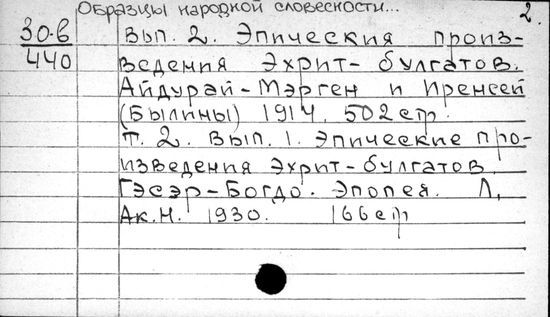 Образцы народной словесности...
2.
30-6
440
Вып. 2. Эпические произ-
ведения Эхрит-булгатов.
Айдурай-Мэрген и Иренсей
(Былины) 1914. 502 стр.
Т. 2. Вып. 1. Эпические про-
изведения Эхрит-булгатов.
Гэсэр-Богдо. Эпопея. Л,
Ак.Н. 1930. 166 стр